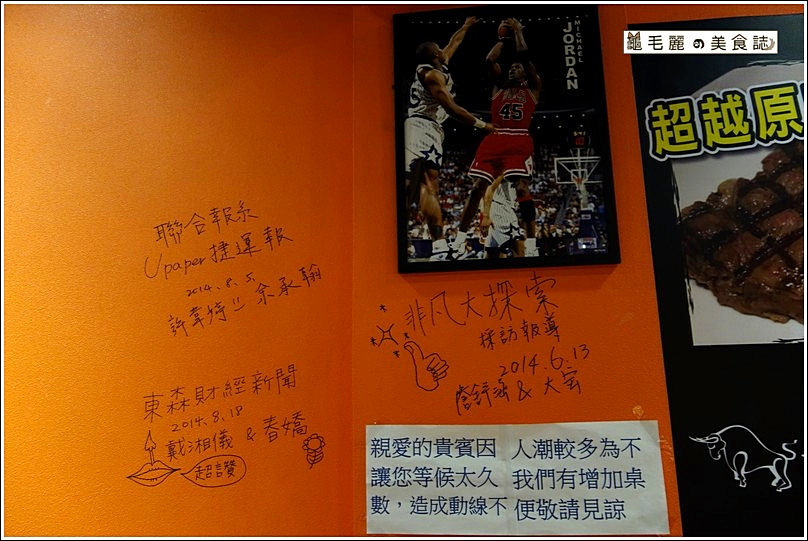 毛麗の美食誌
MICHAEL
JORDAN
45
超越原
聯合報系
Upaper捷運報
2014.8.5.
東森財經新聞
2014.8.18
戴湘儀 & 春嬌
超讚
非凡大探索
採訪報導
2014.6.13
& 大宏
親愛的貴賓因 人潮較多為不
讓您等候太久 我們有增加桌
數，造成動線不 便敬請見諒